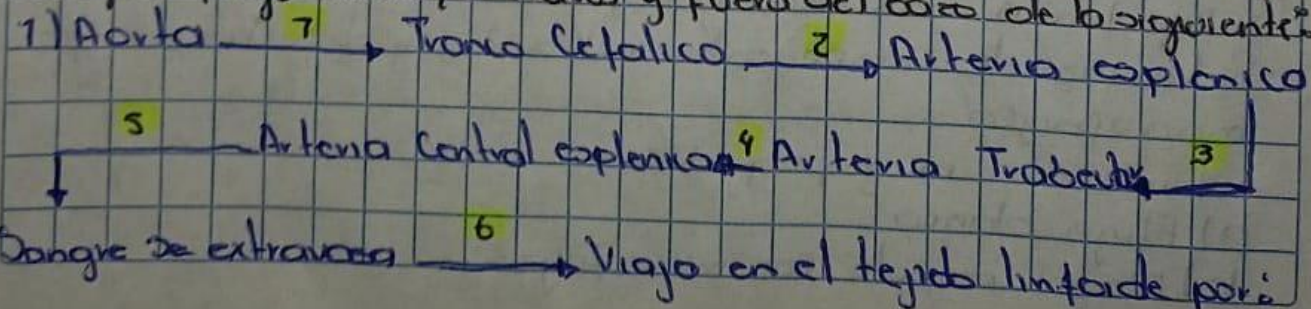 y fuera del bazo de la siguiente:
1) Aorta 1 Tronco Cefalico 2 Arteria esplenica
5 Arteria Central esplenica 4 Arteria Trabecular 3
Sangre se extravasa 6 Viaja en el tejido linfoide por: